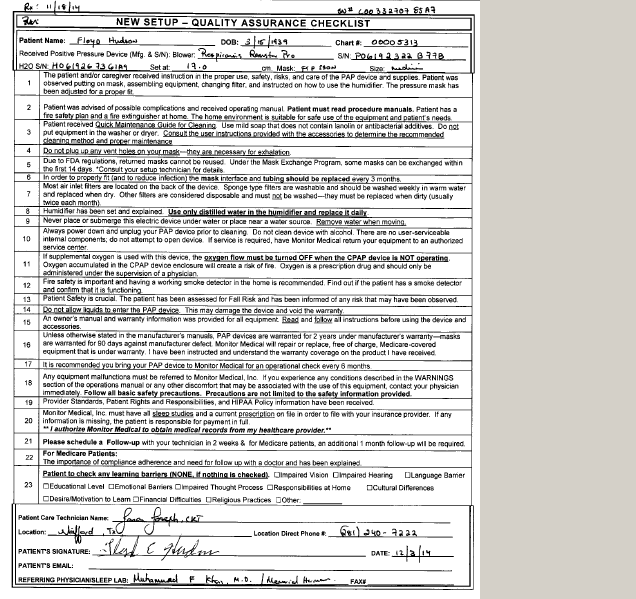 Rx: 11/18/14
SW# C00332707 85A7
NEW SETUP – QUALITY ASSURANCE CHECKLIST
Patient Name: Floyd Hudson DOB: 3/15/1939 Chart #: 00005313
Received Positive Pressure Device (Mfg. & S/N): Blower: Respironics Remstar Pro S/N: P06192322 B77B
H2O S/N: Set at: 17.0 cm. Mask: Size: medium
1 The patient and/or caregiver received instruction in the proper use, safety, risks, and care of the PAP device and supplies. Patient was
observed putting on mask, assembling equipment, changing filter, and instructed on how to use the humidifier. The pressure mask has
been adjusted for a proper fit.
2 Patient was advised of possible complications and received operating manual. Patient must read procedure manuals. Patient has a
fire safety plan and a fire extinguisher at home. The home environment is suitable for safe use of the equipment and patient's needs.
3 Patient received Quick Maintenance Guide for Cleaning. Use mild soap that does not contain lanolin or antibacterial additives. Do not
put equipment in the washer or dryer. Consult the user instructions provided with the accessories to determine the recommended
cleaning method and proper maintenance
4 Do not plug up any vent holes on your mask—they are necessary for exhalation.
5 Due to FDA regulations, returned masks cannot be reused. Under the Mask Exchange Program, some masks can be exchanged within
the first 14 days. *Consult your setup technician for details.
6 In order to properly fit (and to reduce infection) the mask interface and tubing should be replaced every 3 months.
7 Most air inlet filters are located on the back of the device. Sponge type filters are washable and should be washed weekly in warm water
and replaced when dry. Other filters are considered disposable and must not be washed—they must be replaced when dirty (usually
twice each month).
8 Humidifier has been set and explained. Use only distilled water in the humidifier and replace it daily.
9 Never place or submerge this electric device under water or place near a water source. Remove water when moving.
10 Always power down and unplug your PAP device prior to cleaning. Do not clean device with alcohol. There are no user-serviceable
internal components; do not attempt to open device. If service is required, have Monitor Medical return your equipment to an authorized
service center.
11 If supplemental oxygen is used with this device, the oxygen flow must be turned OFF when the CPAP device is NOT operating.
Oxygen accumulated in the CPAP device enclosure will create a risk of fire. Oxygen is a prescription drug and should only be
administered under the supervision of a physician.
12 Fire safety is important and having a working smoke detector in the home is recommended. Find out if the patient has a smoke detector
and confirm that it is functioning.
13 Patient Safety is crucial. The patient has been assessed for Fall Risk and has been informed of any risk that may have been observed.
14 Do not allow liquids to enter the PAP device. This may damage the device and void the warranty.
15 An owner's manual and warranty information was provided for all equipment. Read and follow all instructions before using the device and
accessories.
16 Unless otherwise stated in the manufacturer's manuals, PAP devices are warranted for 2 years under manufacturer's warranty—masks
are warranted for 90 days against manufacturer defect. Monitor Medical will repair or replace, free of charge, Medicare-covered
equipment that is under warranty. I have been instructed and understand the warranty coverage on the product I have received.
17 It is recommended you bring your PAP device to Monitor Medical for an operational check every 6 months.
18 Any equipment malfunctions must be referred to Monitor Medical, Inc. If you experience any conditions described in the WARNINGS
section of the operations manual or any other discomfort that may be associated with the use of this equipment, contact your physician
immediately. Follow all basic safety precautions. Precautions are not limited to the safety information provided.
19 Provider Standards, Patient Rights and Responsibilities, and HIPAA Policy information have been received.
20 Monitor Medical, Inc. must have all sleep studies and a current prescription on file in order to file with your insurance provider. If any
information is missing, the patient is responsible for payment in full.
** I authorize Monitor Medical to obtain medical records from my healthcare provider.**
21 Please schedule a Follow-up with your technician in 2 weeks & for Medicare patients, an additional 1 month follow-up will be required.
22 For Medicare Patients:
The importance of compliance adherence and need for follow up with a doctor and has been explained.
23 Patient to check any learning barriers (NONE, if nothing is checked). ☐Impaired Vision ☐Impaired Hearing ☐Language Barrier
☐Educational Level ☐Emotional Barriers ☐Impaired Thought Process ☐Responsibilities at Home ☐Cultural Differences
☐Desire/Motivation to Learn ☐Financial Difficulties ☐Religious Practices ☐Other:
Patient Care Technician Name: Joseph, CRT
Location: Stafford, Tx Location Direct Phone #: (281) 240-7222
PATIENT'S SIGNATURE: Floyd C Hudson DATE: 12/3/14
PATIENT'S EMAIL:
REFERRING PHYSICIAN/SLEEP LAB: Muhammad F Khan, M.D. / Memorial Hermann FAX#